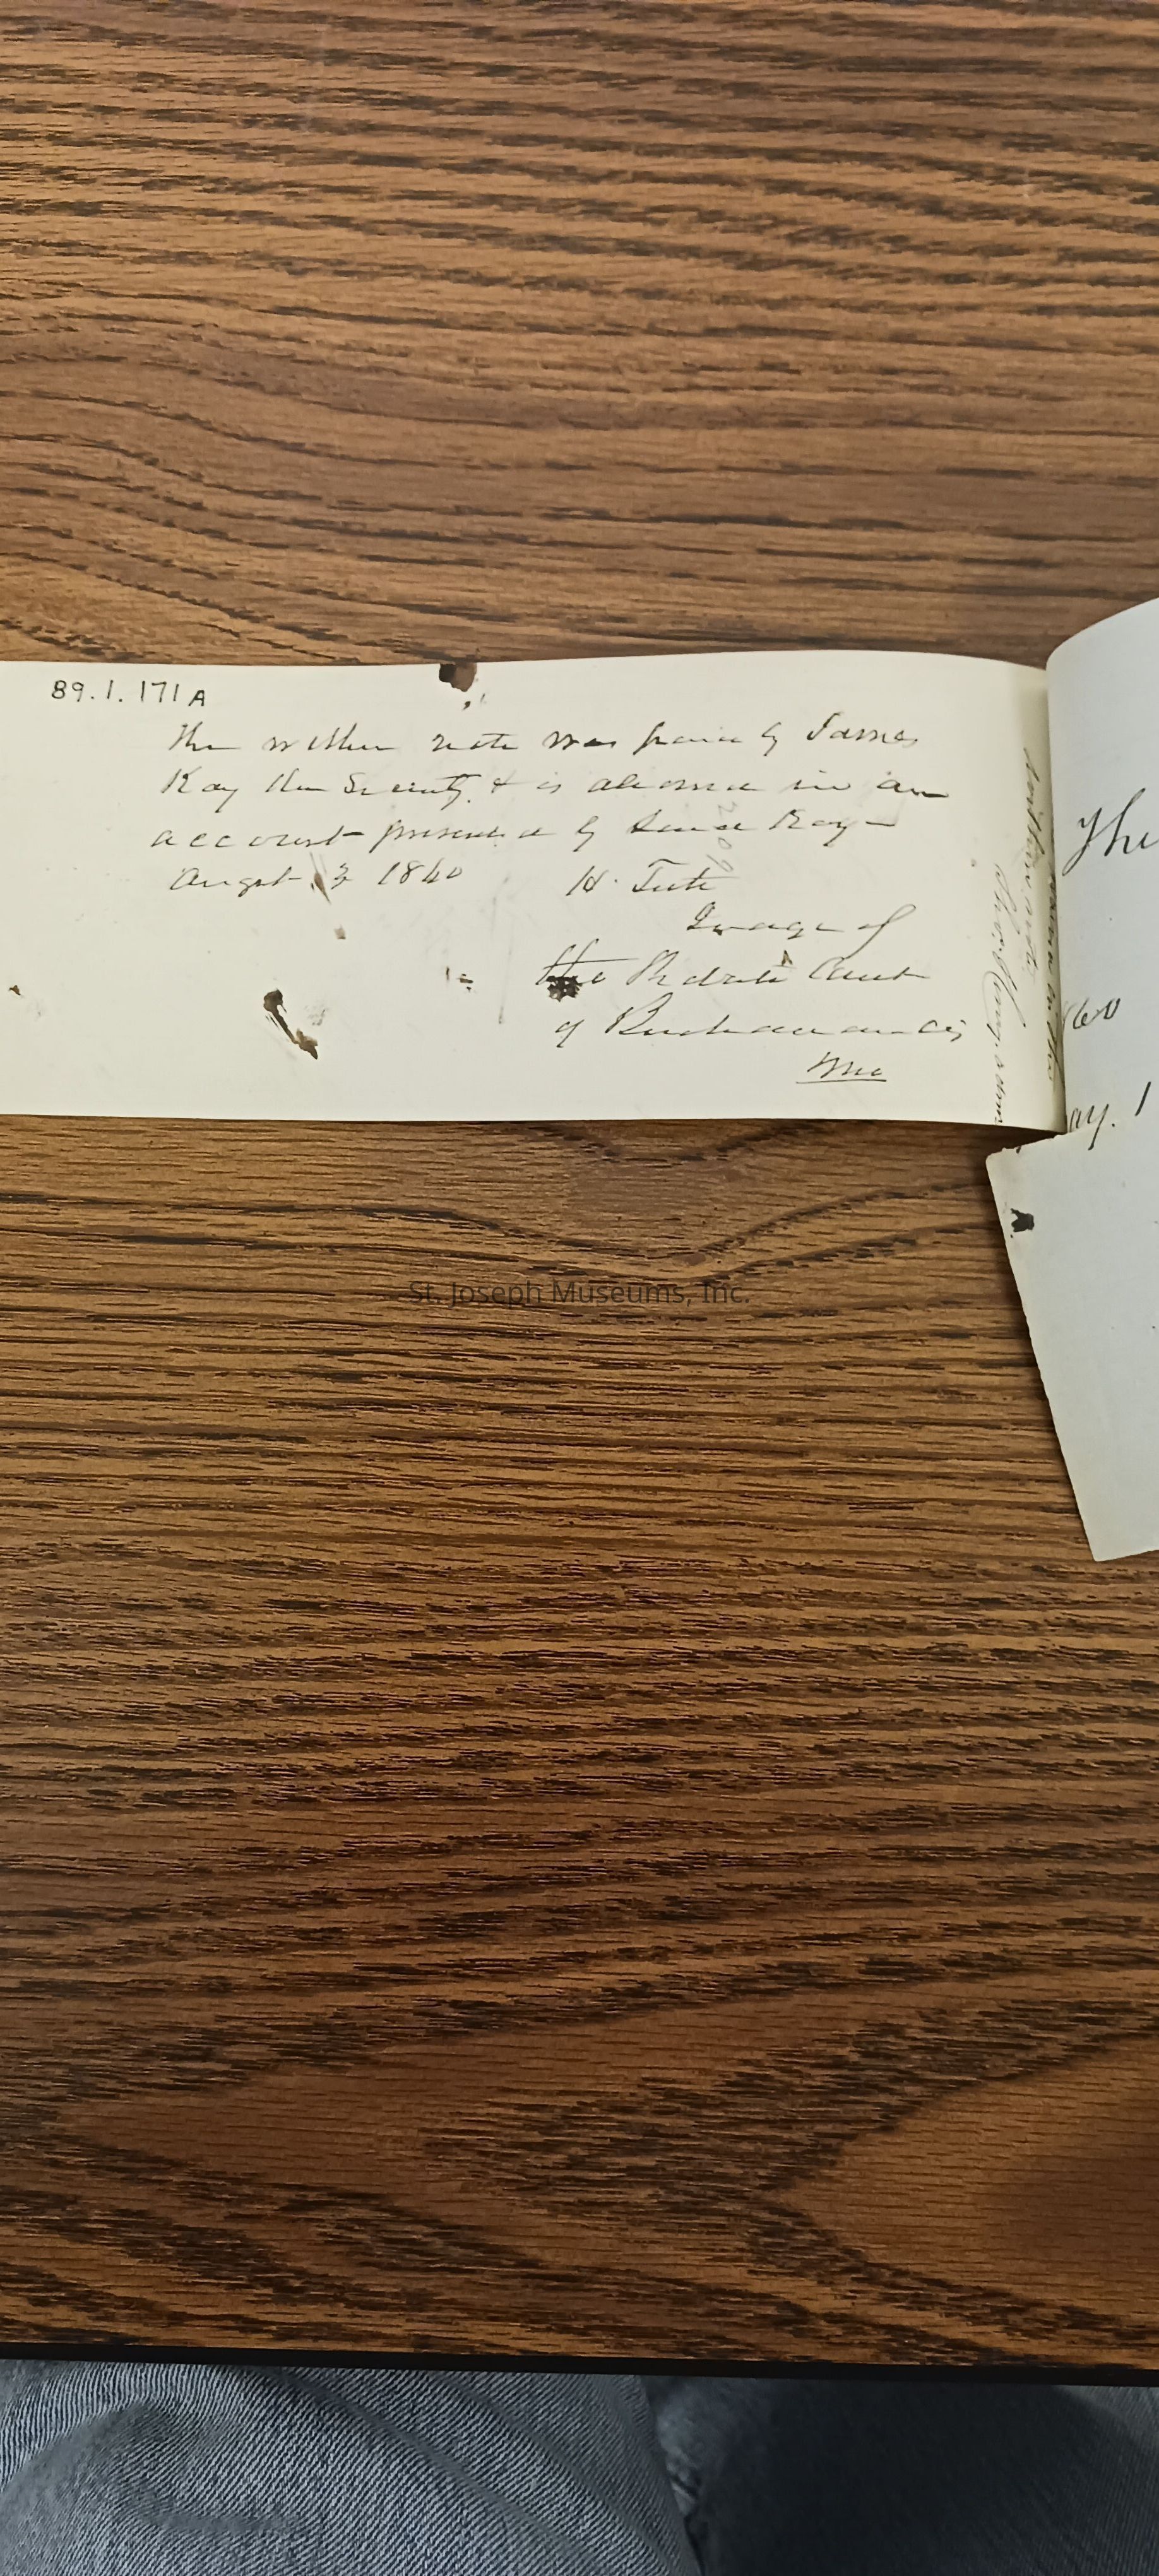 89.1.171A
The within note was paid by James
Ray the Security & is allowed in an
account presented by said Ray
August 3 1860 H. Tutt
Judge of
the Probate Court
of Buchanan Co
Mo
The
60
ay. 1
St. Joseph Museums, Inc.